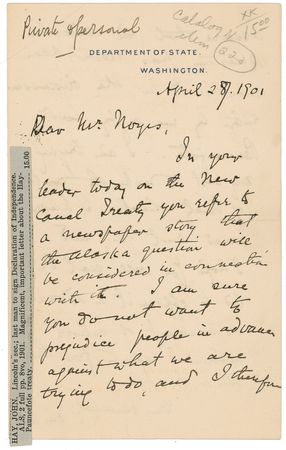 Private & personal
Catalog
item 222
XX
15.00
DEPARTMENT OF STATE,
WASHINGTON.
April 28, 1901
Dear Mr Noyes,
In your
leader today on the New
Canal Treaty you refer to
a newspaper story that
the Alaska question will
be considered in connection
with it. I am sure
you do not want to
prejudice people in advance
against what we are
trying to do, and I therefore
HAY, JOHN. Lincoln's sec.; 1st man to sign Declaration of Independence.
ALS, 2 full pp. 8vo, 1901. Magnificent, important letter about the Hay-
Pauncefote treaty. 15.00